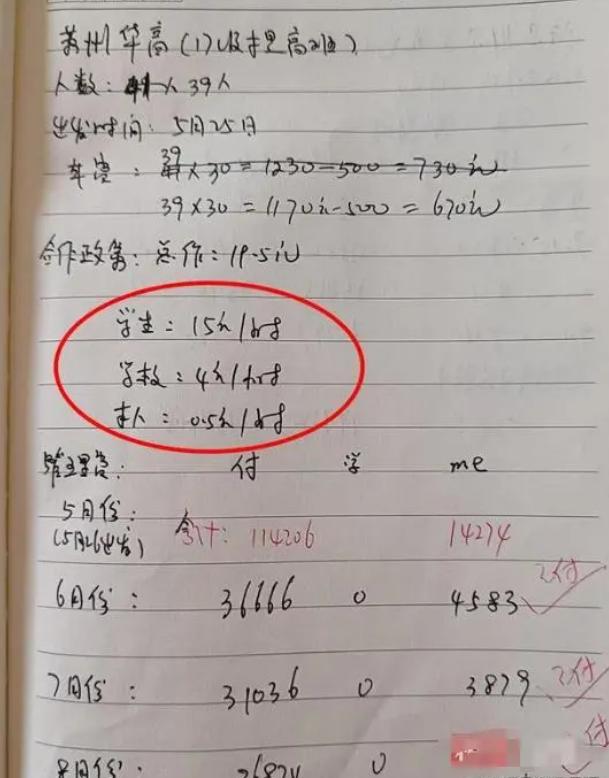 苏州华高(17级提高班)
人数: 39人
出发时间: 5月25日
车费: 39×30=1230-500=730元
39×30=1170元-500=670元
合作政策: 总价: 19.5元
学生: 15元/时
学校: 4元/时
本人: 0.5元/时
管理费: 付 学 me
5月份:
(5月26出发) 合计: 114206 14274
6月份: 36666 0 4583 已付
7月份: 31036 0 3879 已付
8月份: 0 付